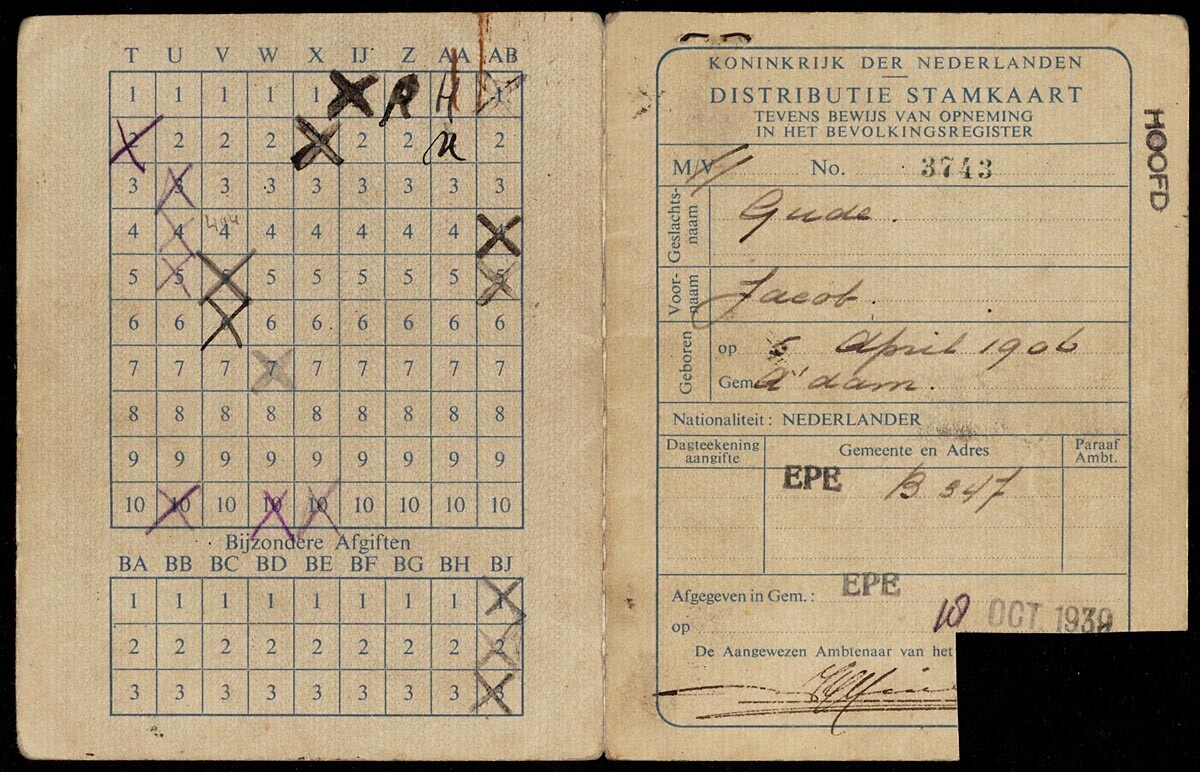 T U V W X IJ Z AA AB
1 1 1 1 1 R H 1
2 2 2 2 2 2 2
3 3 3 3 3 3 3 3 3
4 4 4 4 4 4 4 4 4
5 5 5 5 5 5 5 5 5
6 6 6 6 6 6 6 6 6
7 7 7 7 7 7 7 7 7
8 8 8 8 8 8 8 8 8
9 9 9 9 9 9 9 9 9
10 10 10 10 10 10 10 10 10
Bijzondere Afgiften
BA BB BC BD BE BF BG BH BJ
1 1 1 1 1 1 1 1 1
2 2 2 2 2 2 2 2 2
3 3 3 3 3 3 3 3 3
KONINKRIJK DER NEDERLANDEN
DISTRIBUTIE STAMKAART
TEVENS BEWIJS VAN OPNEMING
IN HET BEVOLKINGSREGISTER
M/V No. 3743
Geslachts-
naam
Gude.
Voor-
naam
Jacob.
Geboren
op 5 April 1906
Gem. A'dam.
Nationaliteit: NEDERLANDER
Dagteekening
aangifte
Gemeente en Adres
Paraaf
Ambt.
EPE B 347
Afgegeven in Gem.: EPE
op 18 OCT. 1939
De Aangewezen Ambtenaar van het
HOOFD